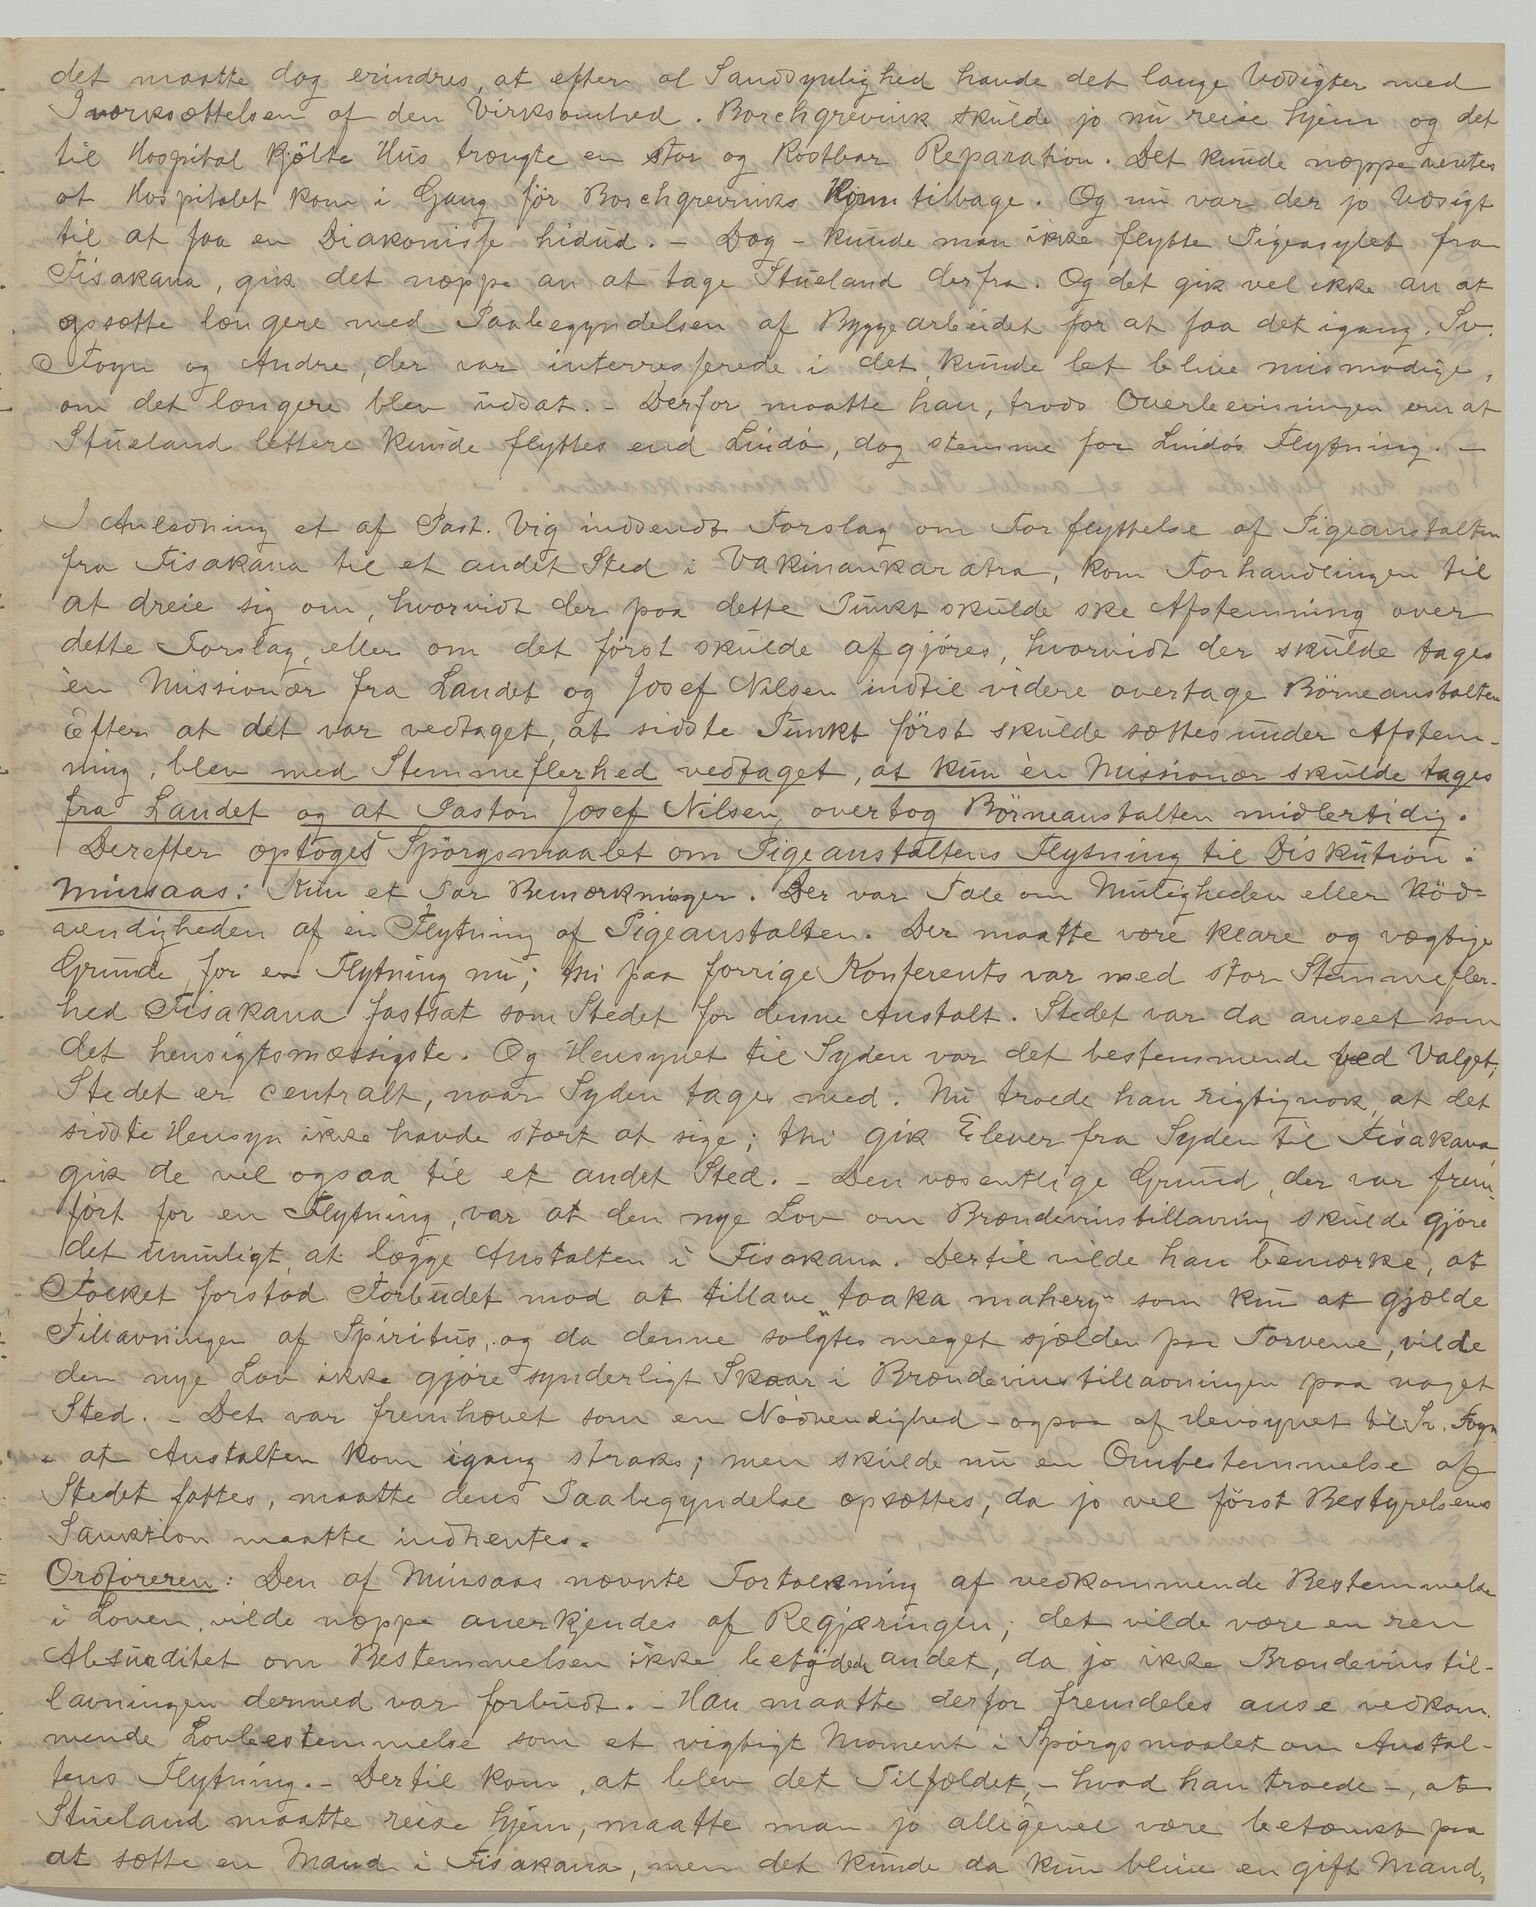 det maatte dog erindres, at efter al Sandsynlighed havde det lange Udsigter med
Iværksættelsen af den Virksomhed. Borchgrevink skulde jo nu reise hjem og det
til Hospital kjöbte Hus trængte en stor og kostbar Reparation. Det kunde næppe ventes
at Hospitalet kom i Gang för Borchgrevinks Komme tilbage. Og nu var der jo Udsigt
til at faa en Diakonisse hidud. – Dog – kunde man ikke flytte Pigeasylet fra
Fisakana, gik det næppe an at tage Stueland derfra. Og det gik vel ikke an at
opsætte længere med Paabegyndelsen af Byggearbeidet for at faa det igang. Sr.
Fogn og Andre, der var interesserede i det, kunde let blive mismodige,
om det længere blev udsat. – Derfor maatte han, trods Overbevisningen om at
Stueland lettere kunde flyttes end Lindö, dog stemme for Lindös Flytning. –
I Anledning et af Past. Vig indsendt Forslag om Forflyttelse af Pigeanstalten
fra Fisakana til et andet Sted i Vakinankaratra, kom Forhandlingen til
at dreie sig om, hvorvidt der paa dette Punkt skulde ske Afstemning over
dette Forslag, eller om det först skulde afgjöres, hvorvidt der skulde tages
èn Missionær fra Landet og Josef Nilsen indtil videre overtage Börneanstalten
Efter at det var vedtaget, at sidste Punkt först skulde sættes under Afstem-
ning, blev med Stemmeflerhed vedtaget, at kun èn Missionær skulde tages
fra Landet og at Pastor Josef Nilsen overtog Börneanstalten midlertidig.
Derefter optoges Spörgsmaalet om Pigeanstaltens Flytning til Diskution:
Minsaas: Kun et Par Bemærkninger. Der var Tale om Muligheden eller Nöd-
vendigheden af en Flytning af Pigeanstalten. Der maatte være klare og vægtige
Grunde for en Flytning nu; thi paa forrige Konferents var med stor Stemmefler-
hed Fisakana fastsat som Stedet for denne Anstalt. Stedet var da anseet som
det hensigtsmæssigste. Og Hensynet til Syden var det bestemmende ved Valget;
Stedet er centralt, naar Syden tages med. Nu troede han rigtignok, at det
sidste Hensyn ikke havde stort at sige; thi gik Elever fra Syden til Fisakana,
gik de vel ogsaa til et andet Sted. – Den væsentlige Grund, der var frem-
fört for en Flytning, var at den nye Lov om Brændevinstillavning skulde gjöre
det umuligt at lægge Anstalten i Fisakana. Dertil vilde han bemærke, at
Folket forstod Forbudet mod at tillave "toaka mahery" som kun at gjælde
Tillavningen af Spiritus, og da denne solgtes meget sjælden paa Torvene, vilde
den nye Lov ikke gjöre synderligt Skaar i Brændevinstillavningen paa noget
Sted. – Det var fremhævet som en Nödvendighed – ogsaa af Hensynet til Sr. Fogn
– at Anstalten kom igang straks; men skulde nu en Ombestemmelse af
Stedet fattes, maatte dens Paabegyndelse opsættes, da jo vel först Bestyrelsens
Sanktion maatte indhentes.
Ordföreren: Den af Minsaas nævnte Fortolkning af vedkommende Bestemmelse
i Loven, vilde næppe anerkjendes af Regjæringen; det vilde være en ren
Absurditet om Bestemmelsen ikke betöd andet, da jo ikke Brændevinstil-
lavningen dermed var forbudt. – Han maatte derfor fremdeles anse vedkom
mende Lovbestemmelse som et vigtigt Moment i Spörgsmaalet om Anstal-
tens Flytning. – Dertil kom, at blev det Tilfældet, – hvad han troede –, at
Stueland maatte reise hjem, maatte man jo alligevel være betænkt paa
at sætte en Mand i Fisakana, men det kunde da kun blive en gift Mand,